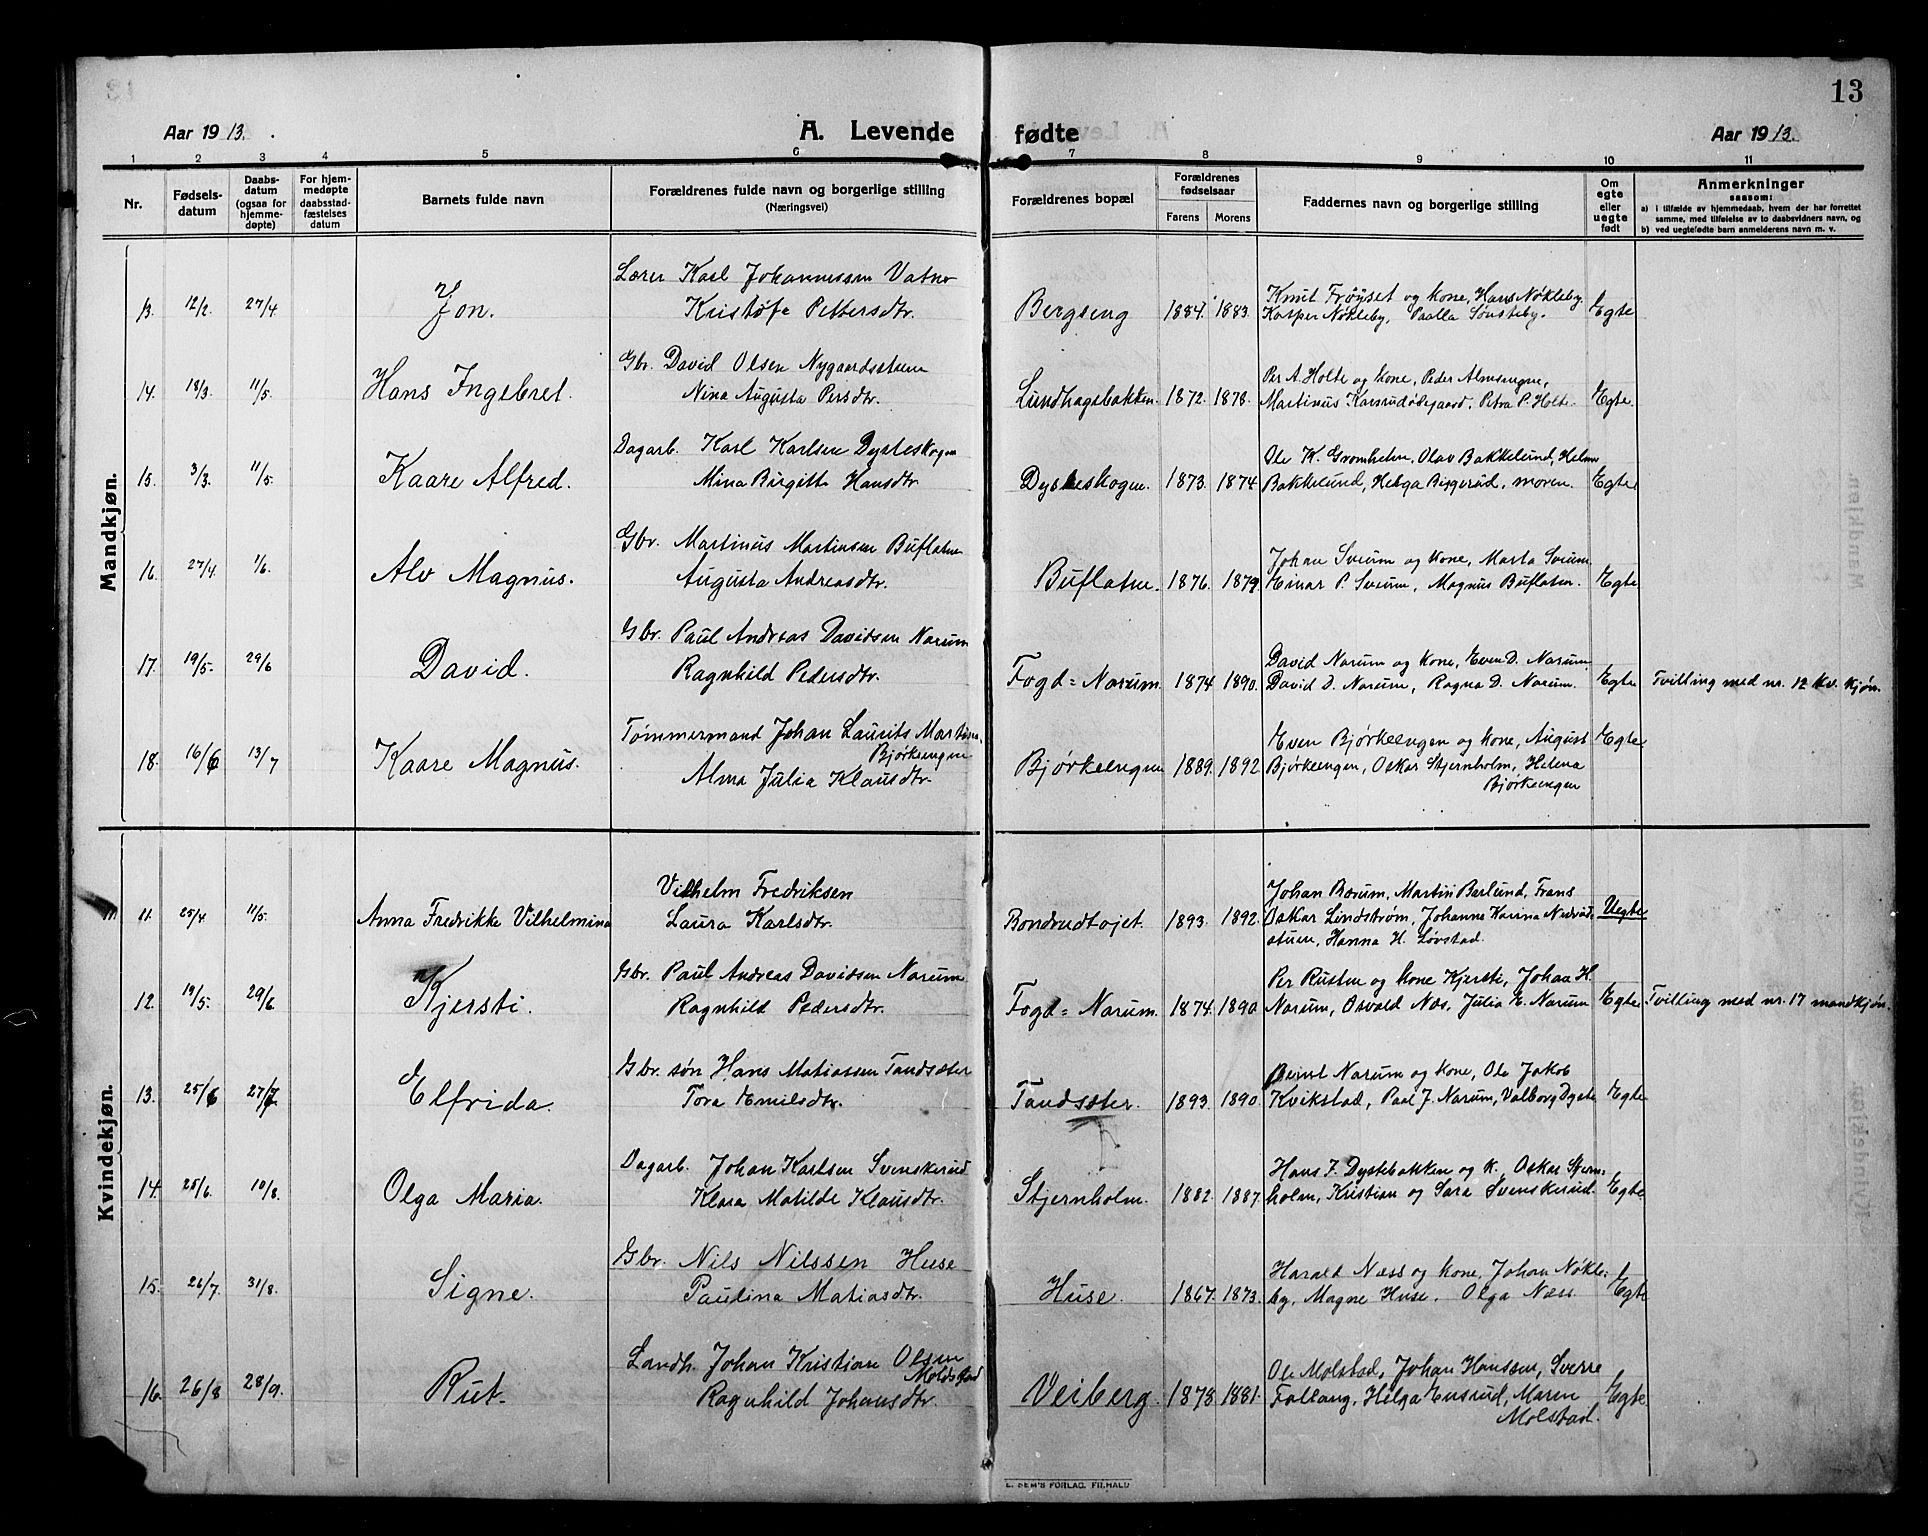 13
Aar 1913.
A. Levende fødte
Aar 1913.
1 2 3 4 5 6 7 8 9 10 11
Nr.
Fødselsdatum
Daabsdatum (ogsaa for hjemmedøpte)
For hjemmedøpte daabsstadfæstelses datum
Barnets fulde navn
Forældrenes fulde navn og borgerlige stilling
(Næringsvei)
Forældrenes bopæl
Forældrenes fødselsaar
Farens Morens
Faddernes navn og borgerlige stilling
Om egte eller uegte født
Anmerkninger
saasom:
a) i tilfælde av hjemmedaab, hvem der har forrettet
samme, med tilføielse av to daabsvidners navn, og
b) ved uegtefødte barn anmelderens navn m. v.
Mandkjøn.
Lærer Karl Johannessen Vatne
13. 12/2. 27/4 Jon. Kristofa Pettersdtr. Bergseng 1884. 1883. Knut Frøyset og kone, Hans Nøkleby.
Kasper Nøkleby, Paalla Sønsteby. Egte
Gbr. David Olsen Nygaardsstuen
14. 18/3. 11/5. Hans Ingebret. Nina Augusta Persdtr. Lundhagsbakken. 1872. 1878. Per A. Holte og kone, Peder Almsengne,
Martinus Karsrudødegaard, Petra P. Holte. Egte.
Dagarb. Karl Karlsen Dysteskogen
15. 3/3. 11/5. Kaare Alfred. Mina Birgitte Hansdtr. Dysteskogen. 1873. 1874 Ole K. Gromheim, Olav Bakkelund, Helene
Bakkelund, Helga Bisgerud, moren. Egte
Gbr. Martinus Martinsen Buflaten
16. 27/4. 1/6. Alv Magnus. Augusta Andreasdtr. Buflaten. 1876. 1879. Johan Sveum og kone, Marta Sveum,
Einar P. Sveum, Magnus Buflaten. Egte
Gbr. Paul Andreas Davidsen Narum
17. 19/5. 29/6 David. Ragnhild Pedersdtr. Fogd=Narum 1874 1890. David Narum og kone, Even D. Narum,
David D. Narum, Ragna D. Narum. Egte Tvilling med nr. 12 kv. kjøn.
Tømmermand Johan Laurits Martinsen
Bjørkeengen
18. 16/6 13/7 Kaare Magnus. Alma Julia Klausdtr. Bjørkeengen 1889. 1892. Even Bjørkeengen og kone, August
Bjørkeengen, Oskar Stjernholm, Helena
Bjørkeengen Egte.
Kvindekjøn.
Vilhelm Fredriksen
11. 25/4 11/5. Anna Fredrikke Vilhelmina Laura Karlsdtr. Bondrudtøjet. 1893. 1892. Johan Børum, Martin Børlund, Frans
Oskar Lindstrøm, Johanne Karina
stuen, Hanna H. Løvstad. Uegte
Gbr. Paul Andreas Davidsen Narum
12. 19/5. 29/6 Kjersti. Ragnhild Pedersdtr. Fogd=Narum. 1874. 1890 Per Rusten og kone Kjersti, Johan H.
Narum, Osvald Næs, Julia E. Narum Egte Tvilling med nr. 17 mandkjøn.
Gbr. søn Hans Matiassen Tandsæter
13. 25/6 27/7 Elfrida. Tora Emilsdtr. Tandsæter. 1893. 1890. Bernt Narum og kone, Ole Jakob
Kvikstad, Paal J. Narum, Valborg Dyste Egte
Dagarb. Johan Karlsen Svenskerud
14. 25/6. 10/8. Olga Maria. Klara Matilde Klausdtr. Stjernholm. 1882. 1887. Hans J. Dystebakken og k., Oskar Stern-
holm, Kristian og Sara Svenskerud. Egte.
Gbr. Nils Nilssen Huse
15. 26/7. 31/8. Signe. Paulina Matiasdtr. Huse. 1867. 1873. Harald Næss og kone, Johan Nøkle-
by, Magne Huse, Olga Næss Egte
Landh. Johan Kristian Olsen
Moldstad
16. 26/8 28/9. Rut. Ragnhild Johansdtr. Veiberg. 1878 1881. Ole Molstad, Johan Hanssen, Sverre
Fallang, Helga Ensrud, Maren
Molstad. Egte
E. SEM'S FORLAG. FR.HALD